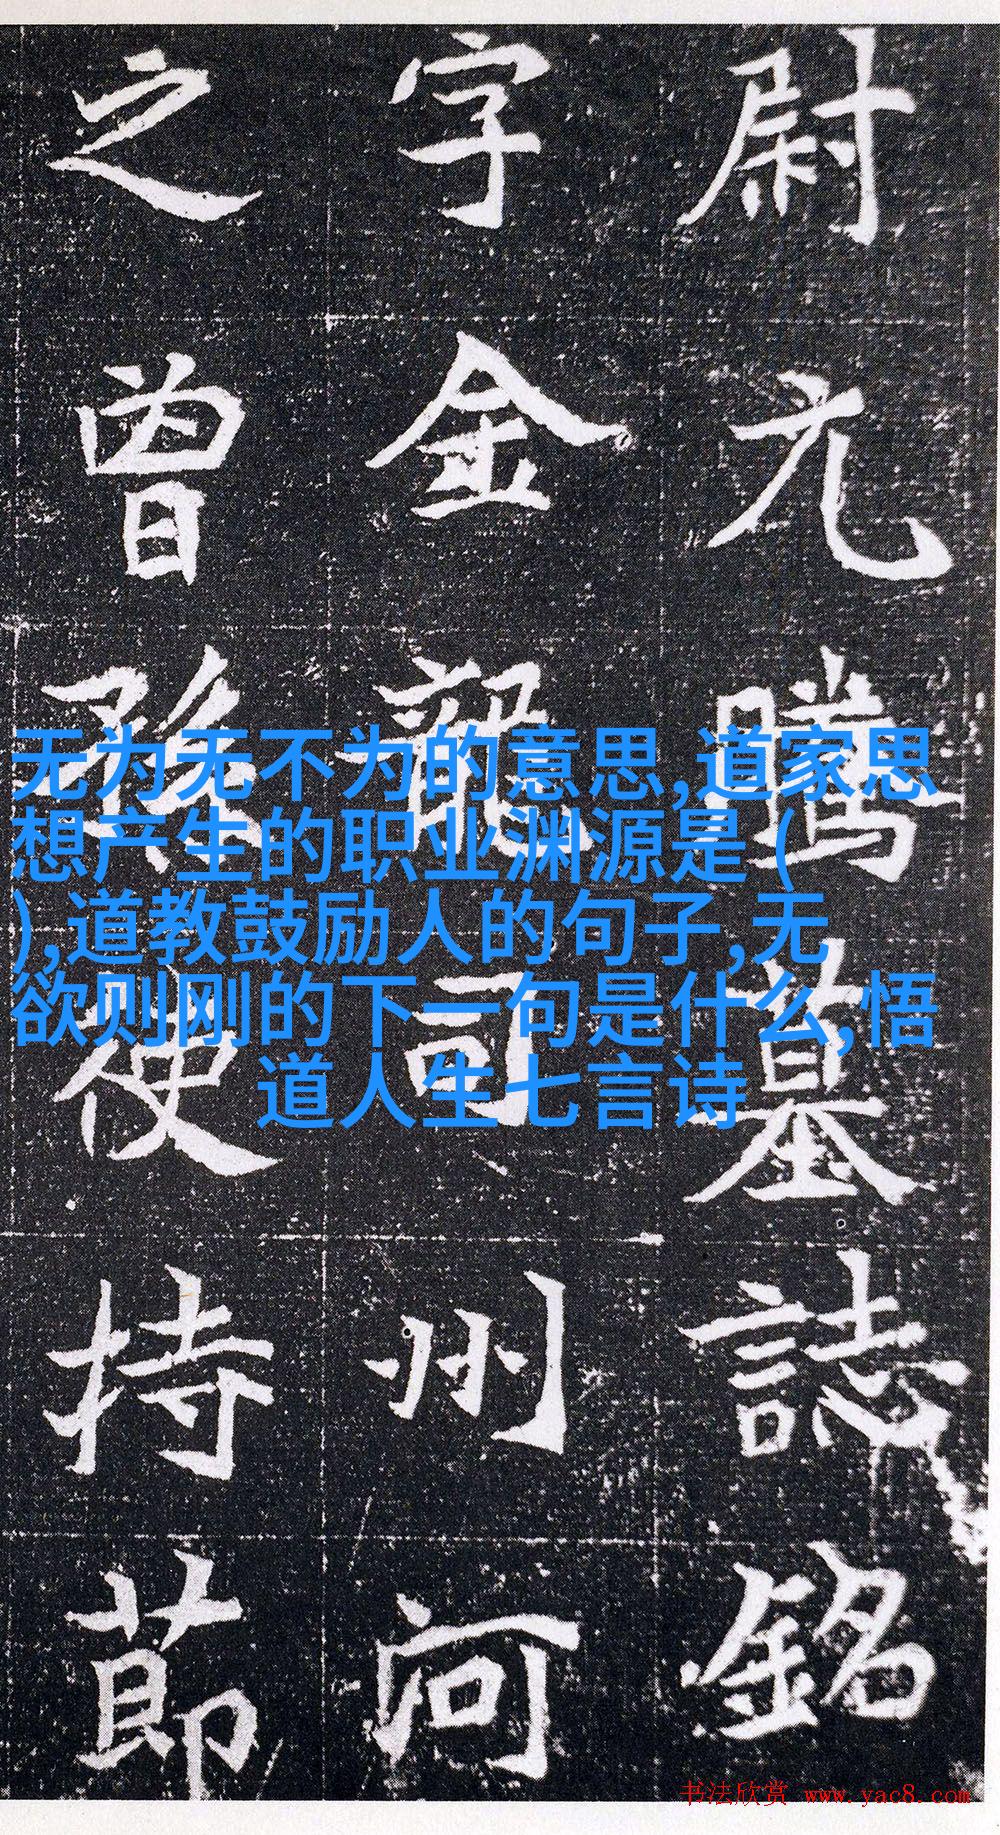 尉元騰墓誌銘
字金龍司州河
之曾孫使持節
无为无不为的意思,道家思
想产生的职业渊源是 (
),道教鼓励人的句子,无
欲则刚的下一句是什么,悟
道人生七言诗
书法欣赏 www.yac8.com